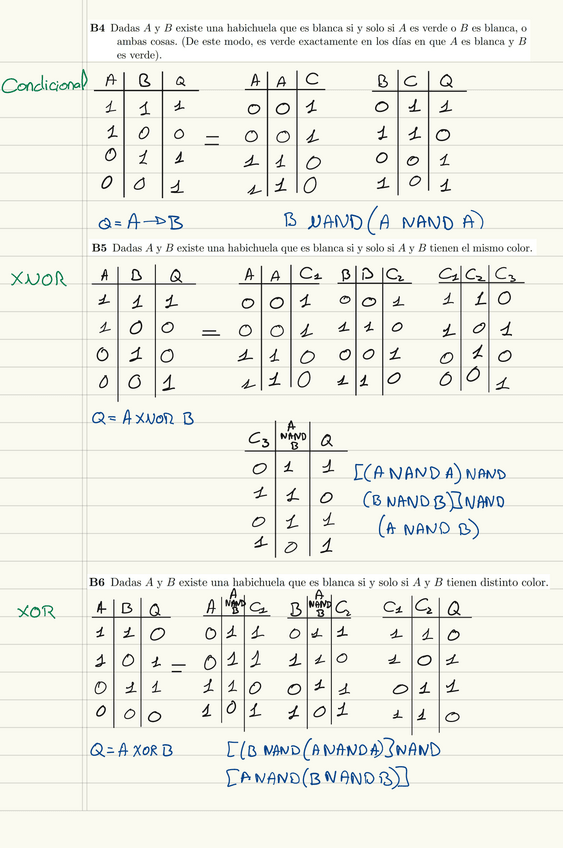 B4 Dadas A y B existe una habichuela que es blanca si y solo si A es verde o B es blanca, o
ambas cosas. (De este modo, es verde exactamente en los días en que A es blanca y B
es verde).
Condicional
A B Q A A C B C Q
1 1 1 0 0 1 0 1 1
1 0 0 = 0 0 1 1 1 0
0 1 1 1 1 0 0 0 1
0 0 1 1 1 0 1 0 1
Q = A → B B NAND (A NAND A)
B5 Dadas A y B existe una habichuela que es blanca si y solo si A y B tienen el mismo color.
XNOR
A B Q A A C1 B B C2 C1 C2 C3
1 1 1 0 0 1 0 0 1 1 1 0
1 0 0 = 0 0 1 1 1 0 1 0 1
0 1 0 1 1 0 0 0 1 0 1 0
0 0 1 1 1 0 1 1 0 0 0 1
Q = A XNOR B
C3 A NAND B Q
0 1 1
1 1 0
0 1 1
1 0 1
[(A NAND A) NAND
(B NAND B)] NAND
(A NAND B)
B6 Dadas A y B existe una habichuela que es blanca si y solo si A y B tienen distinto color.
XOR
A B Q A A NAND B C1 B A NAND B C2 C1 C2 Q
1 1 0 0 1 1 0 1 1 1 1 0
1 0 1 = 0 1 1 1 1 0 1 0 1
0 1 1 1 1 0 0 1 1 0 1 1
0 0 0 1 0 1 1 0 1 1 1 0
Q = A XOR B [(B NAND (A NAND A)] NAND
[A NAND (B NAND B)]